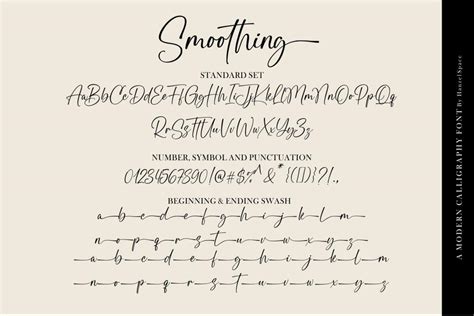 Smoothing
STANDARD SET
AaBbCcDdEeFfGgHhIiJjKkLlMmNnOoPpQq
RrSsTtUuVvWwXxYyZz
NUMBER, SYMBOL AND PUNCTUATION
01234567890!@#$%^&*{([])}?!.,
BEGINNING & ENDING SWASH
a b c d e f g h i j k l m
n o p q r s t u v w x y z
a b c d e f g h i j k l m
n o p q r s t u v w x y z
A MODERN CALLIGRAPHY FONT By HanzelSpace